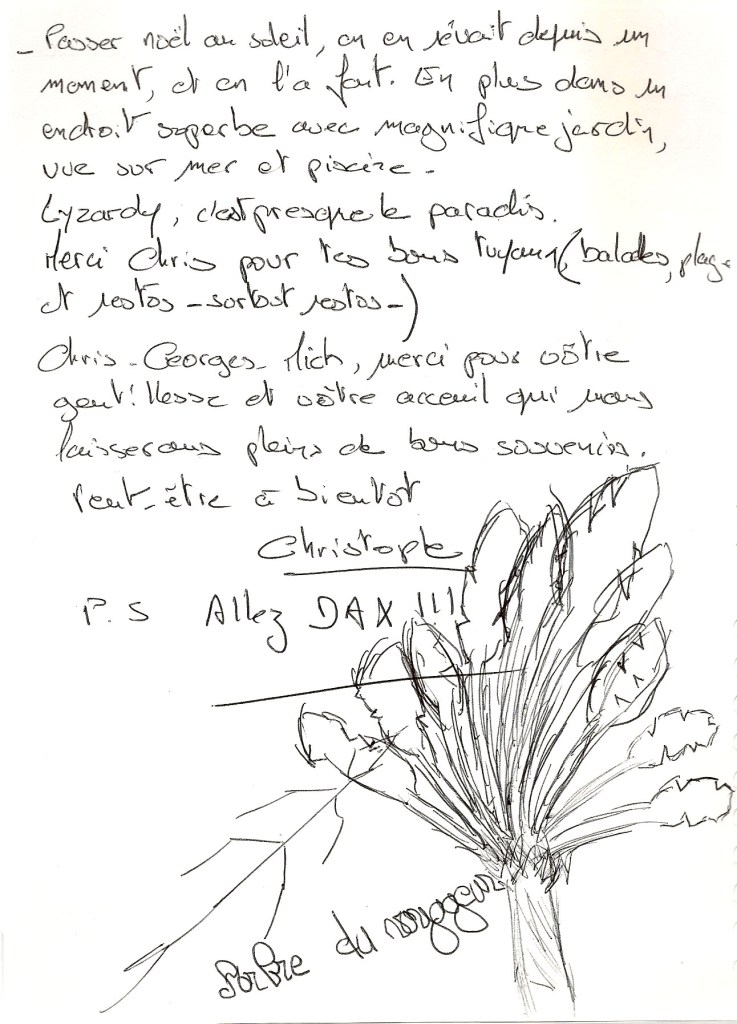 - Passer noël au soleil, on en rêvait depuis un
moment, et on l'a fait. En plus dans un
endroit superbe avec magnifique jardin,
vue sur mer et piscine -
Lyzardy, c'est presque le paradis.
Merci Chris pour tes bons tuyaux (balades, plage
et restos - surtout restos -)
Chris - Georges - Mich, merci pour vôtre
gentillesse et vôtre acceuil qui nous
laisserons pleins de bons souvenirs.
Peut-être à bientot
Christophe
P.S Allez DAX !!!
arbre du voyageur